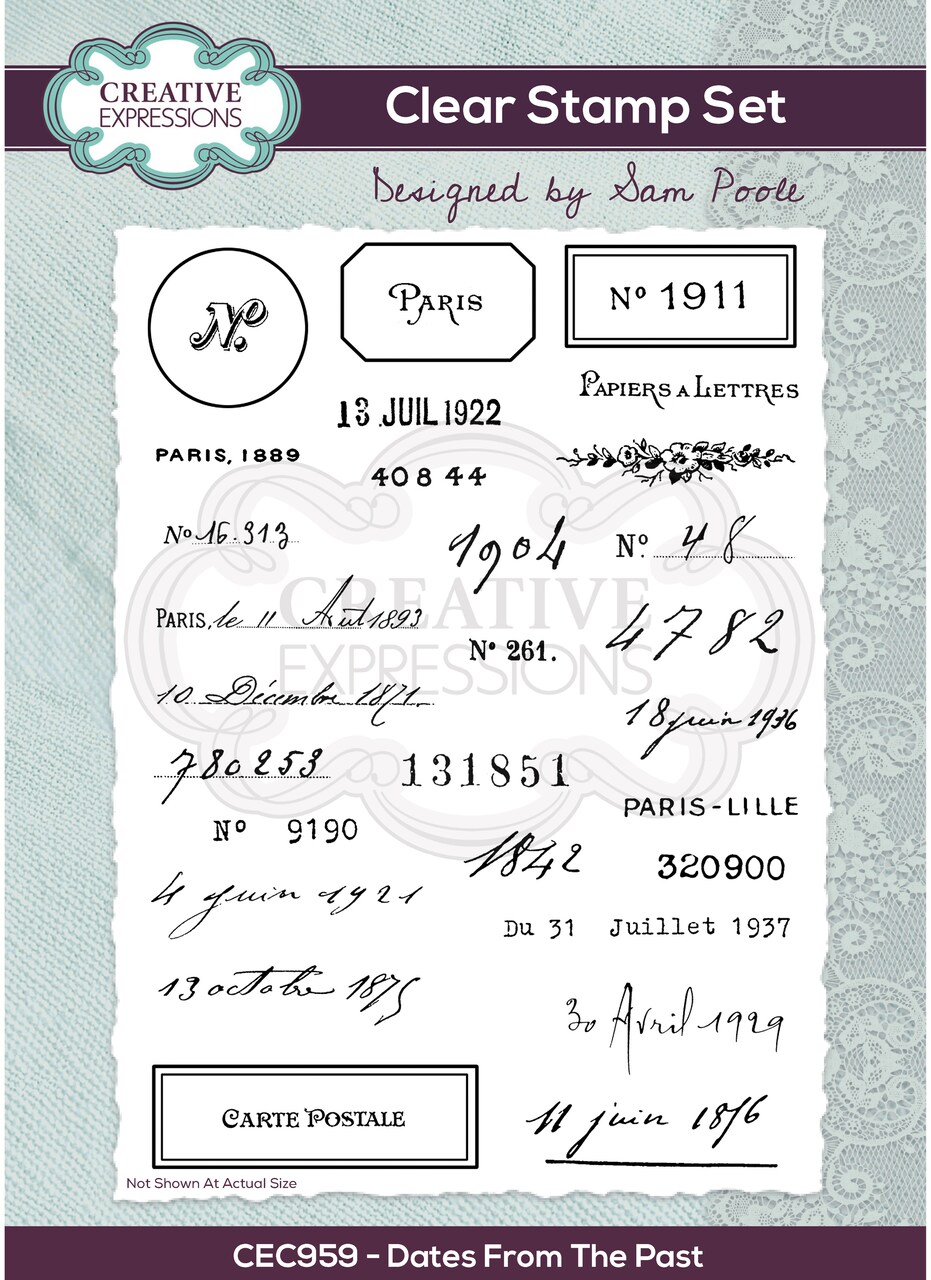 CREATIVE
EXPRESSIONS
Clear Stamp Set
Designed by Sam Poole
Nº
PARIS
Nº 1911
PAPIERS A LETTRES
13 JUIL 1922
PARIS, 1889
408 44
Nº 16.313
1904
Nº 48
PARIS, le 11 Août 1893
4782
Nº 261.
10 Décembre 1871
18 juin 1936
780253
131851
PARIS-LILLE
Nº 9190
1842
320900
4 juin 1921
Du 31 Juillet 1937
13 octobre 1875
30 Avril 1929
CARTE POSTALE
11 juin 1876
Not Shown At Actual Size
CREATIVE
EXPRESSIONS
CEC959 - Dates From The Past